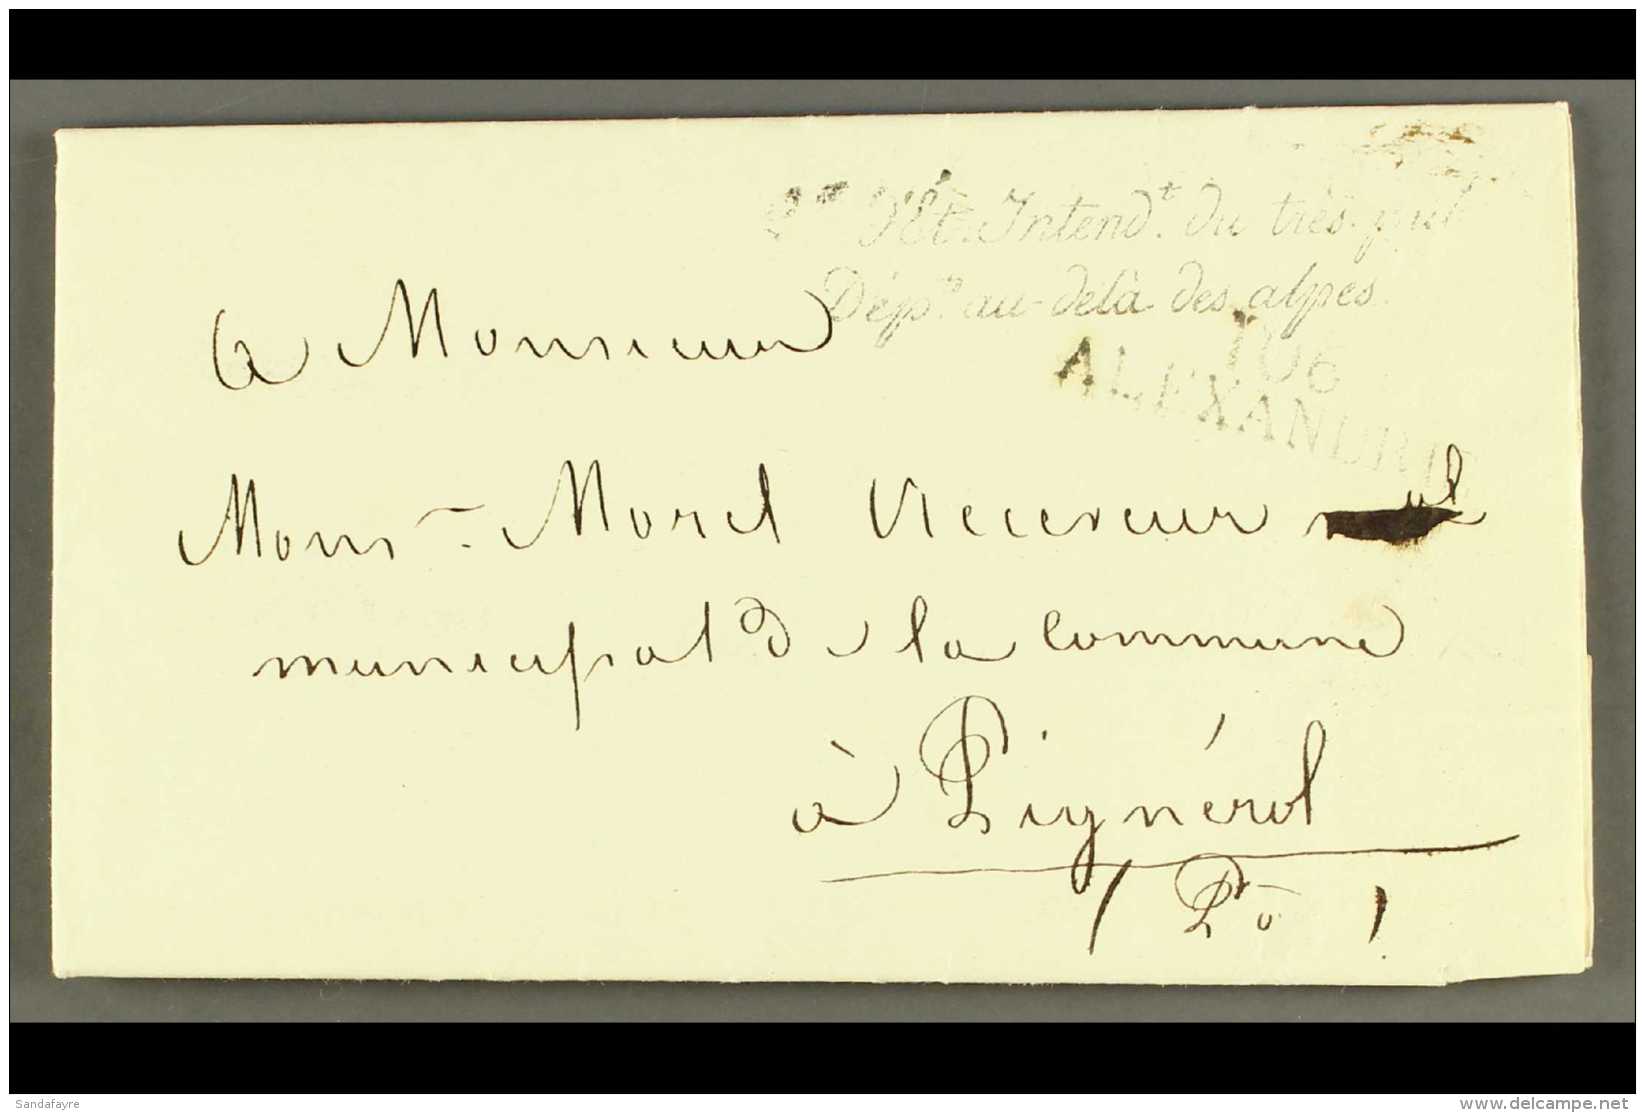 d'Et. Intend.t du trés. pub
Dép.ts au-delà des alpes.
106
ALEXANDRIE
à Monsieur
Mons.r Morel Receveur
municipal de la Commune
à Pignérol
/ Pô /
Sandafayre
www.delcampe.net